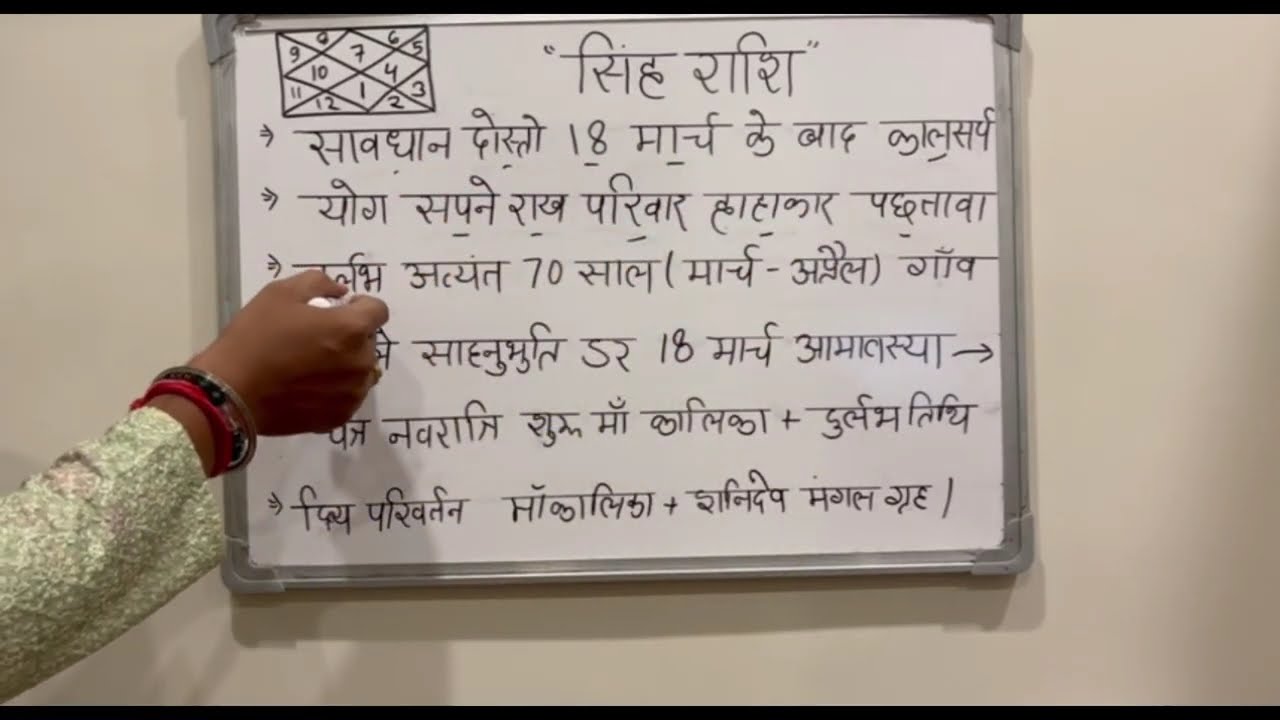 8 6
9 7 5
10 4
11 1 3
12 2
"सिंह राशि"
⇒ सावधान दोस्तो 18 मार्च के बाद कालसर्प
⇒ योग सपने राख परिवार हाहाकार पछतावा
⇒ अत्यंत 70 साल (मार्च - अप्रैल) गाँव
साहनुभुति डर 18 मार्च आमावस्या →
नवरात्रि शुरू माँ कालिका + दुर्लभ तिथि
⇒ परिवर्तन माँ कालिका + शनिदेव मंगल गृह |